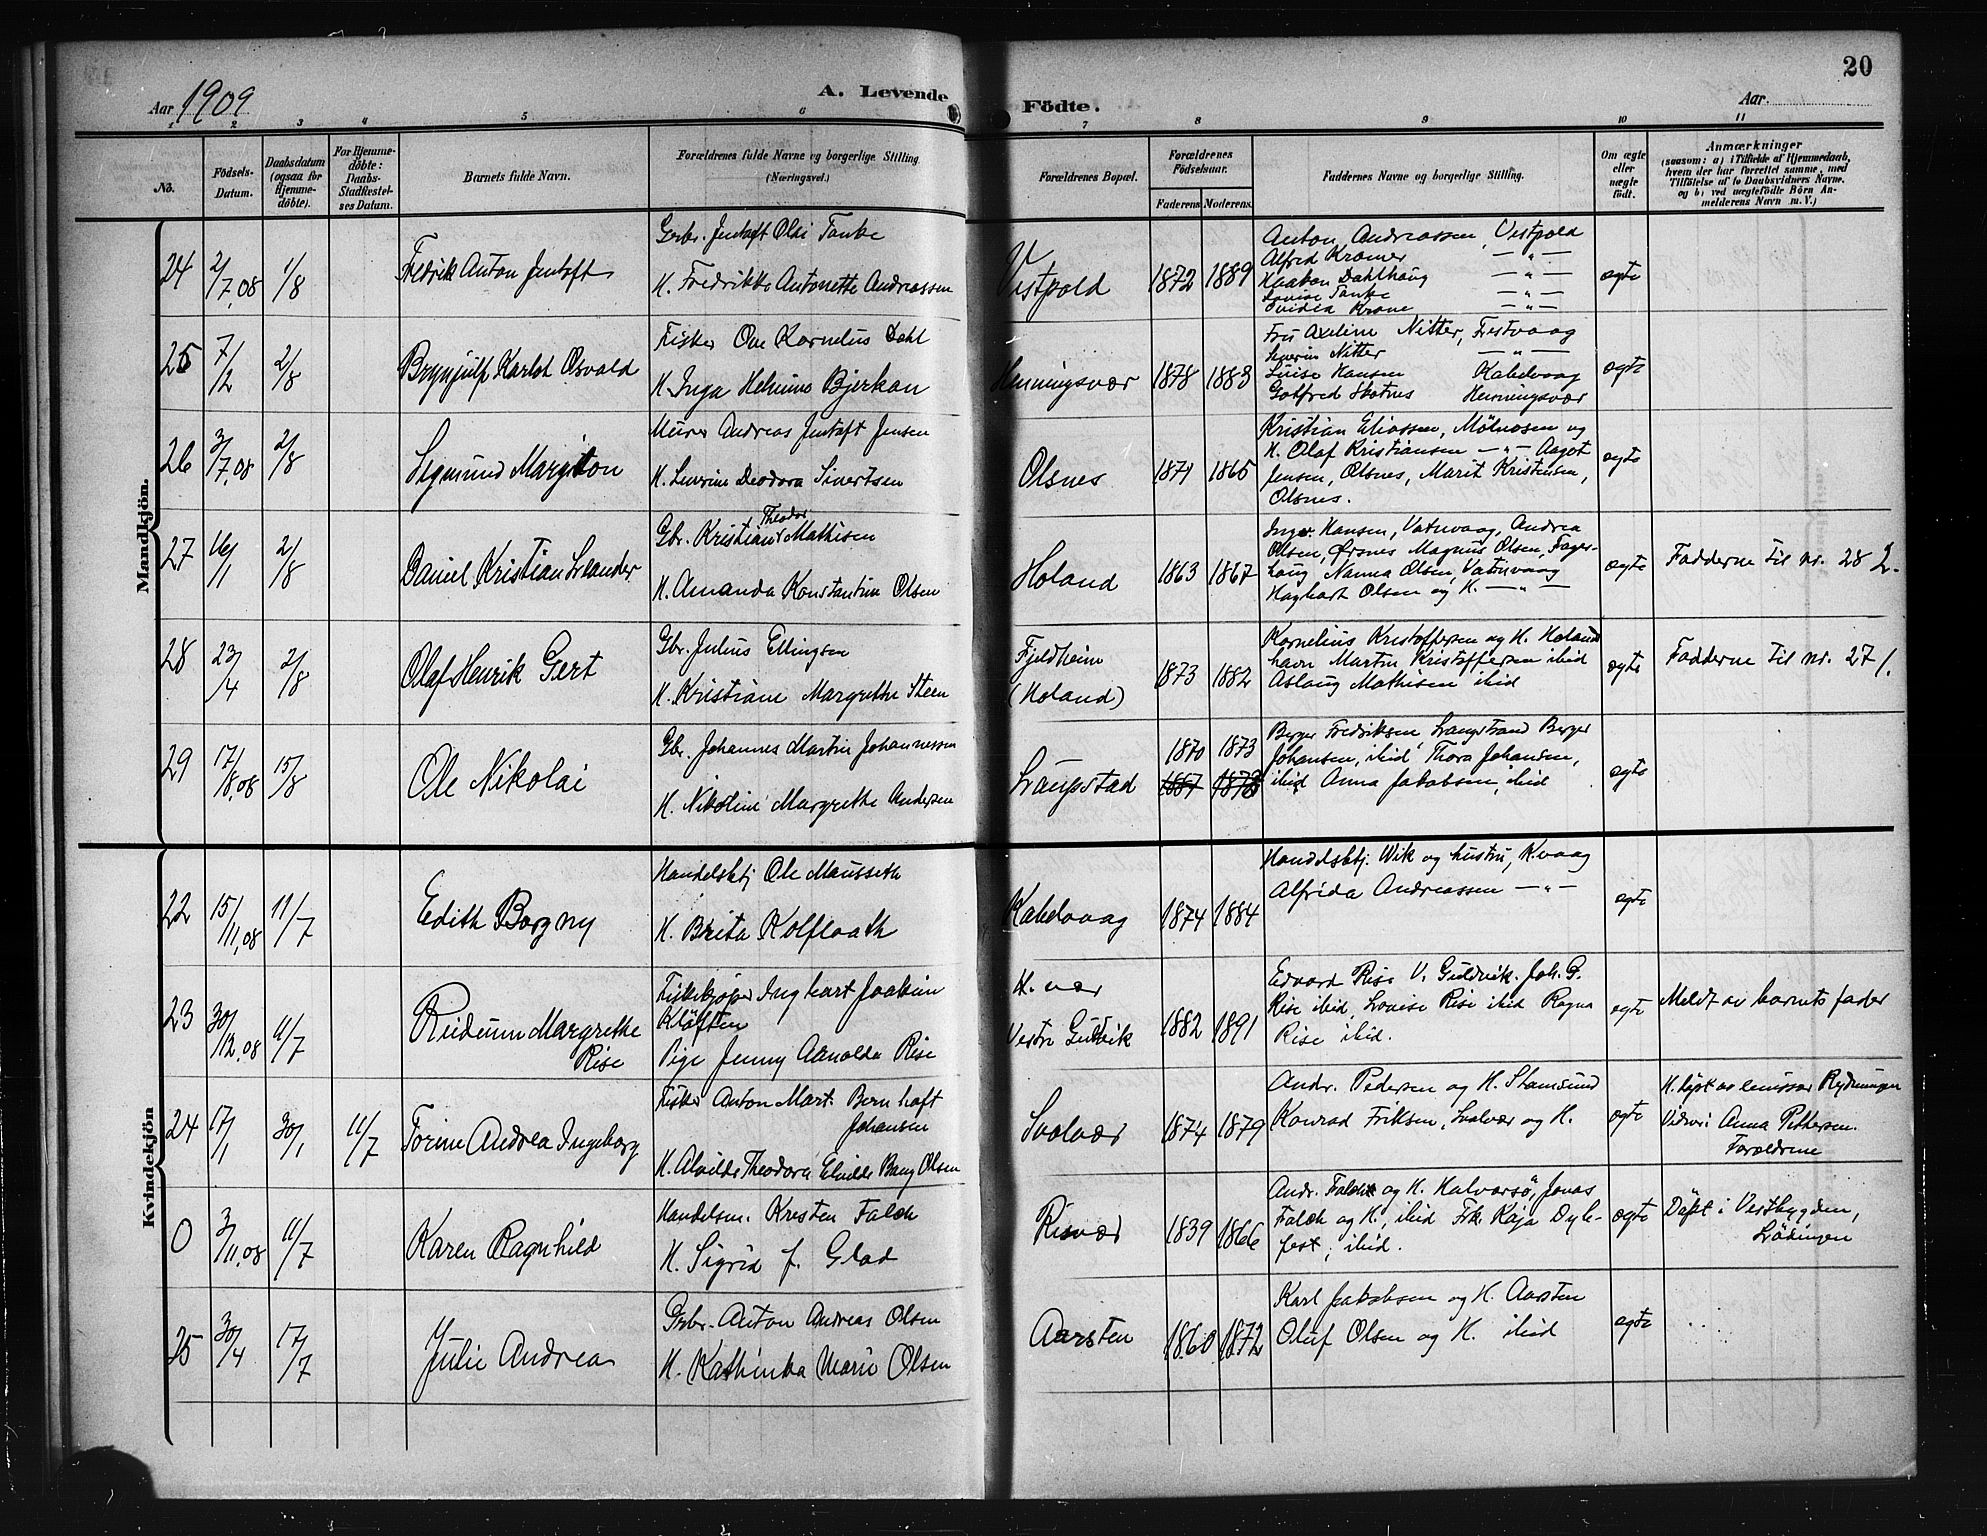 20
Aar 1909
A. Levende
Födte.
Aar.
1 2 3 4 5 6 7 8 9 10 11
No.
Födsels-
Datum.
Daabsdatum
(ogsaa for
Hjemme-
döbte).
For Hjemme-
döbte:
Daabs-
Stadfæstel-
ses Datum.
Barnets fulde Navn.
Forældrenes fulde Navne og borgerlige Stilling
(Næringsvei.)
Forældrenes Bopæl.
Forældrenes
Födselsaar.
Faderens Moderens.
Faddernes Navne og borgerlige Stilling.
Om ægte
eller
uægte
födt.
Anmærkninger
(saasom: a) i Tilfælde af Hjemmedaab,
hvem der har forrettet samme, med
Tilföielse af to Daabsvidners Navne,
og b) ved uægtefödte Börn An-
melderens Navn m. V.)
Mandkjön.
24 2/7.08 1/8
Fredrik Anton Jentoft
Grbr. Jentoft Olai Tanke
H. Fredrikke Antonette Andreassen
Vestpold
1872 1889
Anton Andreassen, Vestpold
Alfred Kromer — " —
Haakon Dahlhaug — " —
Lovise Tanke — " —
Krone — " —
ægte
25 7/2 2/8
Brynjulf Karlot Osvald
Fisker Ove Kornelius Dahl
H. Inga Helmine Bjerkan
Henningsvær
1878 1883
Fru Axeline Nitter, Festvaag
Severin Nitter — " —
Luise Hansen Kabelvaag
Gotfred Skotnes Henningsvær
ægte
26 3/7.08 2/8
Sigmund Margiton
Murer Andreas Jentoft Jensen
H. Severine Deodora Sivertsen
Olsnes
1871 1865
Kristian Eliassen, Mölnosen og
H. Olaf Kristiansen — " — Aagot
Jensen, Olsnes, Marit Kristensen,
Olsnes.
ægte
27 16/1 2/8
Daniel Kristian Leander
Gbr. Kristian Theodor Mathisen
H. Amanda Konstantine Olsen
Holand
1863 1867
Inger Hansen, Vatnvaag, Andrea
Olsen, Ørsnes Magnus Olsen, Fager-
haug, Nanna Olsen, Vatnvaag
Hagbart Olsen og H. — " —
ægte
Fadderne til nr. 28 2.
28 23/4 2/8
Olaf Henrik Gert
Gbr. Julius Ellingsen
H. Kristiane Margrethe Steen
Fjeldheim
(Holand)
1873 1882
Kornelius Kristoffersen og H. Holands
havn Martin Kristoffersen ibid
Aslaug Mathisen ibid
ægte
Fadderne til nr. 27 1.
29 17/8.08 15/8
Ole Nikolai
Gbr. Johannes Martin Johannessen
H. Nikoline Margrethe Andersen
Laupstad
1870 1873
1867 1878
Berger Fredriksen Langstrand Berger
Johansen, ibid, Thora Johansen,
ibid, Anna Jakobsen, ibid
ægte
Kvindekjön
22 15/11.08 11/7
Edith Borgny
Handelsbtj Ole Mausseth
H. Brita Kolflaath
Kabelvaag
1874 1884
Handelsbtj. Wik og hustru, K.vaag
Alfrida Andreassen — " —
ægte
23 30/12.08 11/7
Reidunn Margrethe
Rise
Fiskekjøper Inghart Joakim
Kløften
Pige Jenny Arnolda Rise
H. vær
Vestre Guldvik
1882 1891
Edvard Rise V. Guldvik. Joh. G.
Rise ibid, Lovise Rise ibid Ragna
Rise ibid.
ægte
Meldt av barnets fader
24 17/1 30/1 11/7
Torine Andrea Ingeborg
Fisker Anton Mart. Bernhoft
Johansen
H. Alvilde Theodora Elvilde Bang Olsen
Svolvær
1874 1879
Andr. Pedersen og H. Stamsund
Konrad Eriksen, Svolvær og H.
ægte
H. døpt av emissær Rydningen
Vidner: Anna Pettersen.
Forældrene
0 3/11.08 11/7
Karen Ragnhild
Handelsm. Kresten Falch
H. Sigrid f. Glad
Risvær
1839 1866
Andr. Falch og H. Halvarsö, Jonas
Falch og H., ibid Frk. Kaja Dybe-
fest, ibid.
ægte
Döpt i Vestbygden,
Lödingen
25 30/4 17/7
Julie Andrea
Grbr. Anton Andreas Olsen
H. Kathinka Marie Olsen
Aarsten
1860 1872
Karl Jakobsen og H. Aarsten
Oluf Olsen og H. ibid
ægte